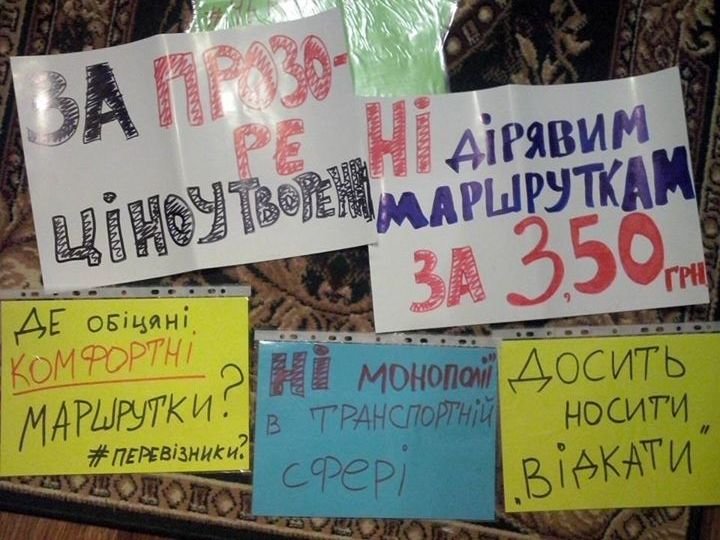 ЗА ПРОЗО-
РЕ
ЦІНОУТВОРЕННЯ
НІ ДІРЯВИМ
МАРШРУТКАМ
ЗА 3,50 ГРН
ДЕ ОБІЦЯНІ
КОМФОРТНІ
МАРШРУТКИ?
#ПЕРЕВІЗНИКИ?
НІ МОНОПОЛІЇ
В ТРАНСПОРТНІЙ
СФЕРІ
ДОСИТЬ
НОСИТИ
„ВІДКАТИ"